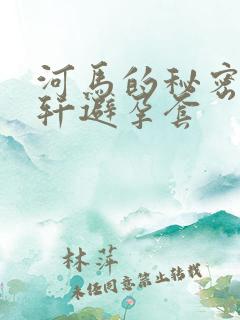 河马的秘密
轩避孕套
林萍
未经同意禁止转载